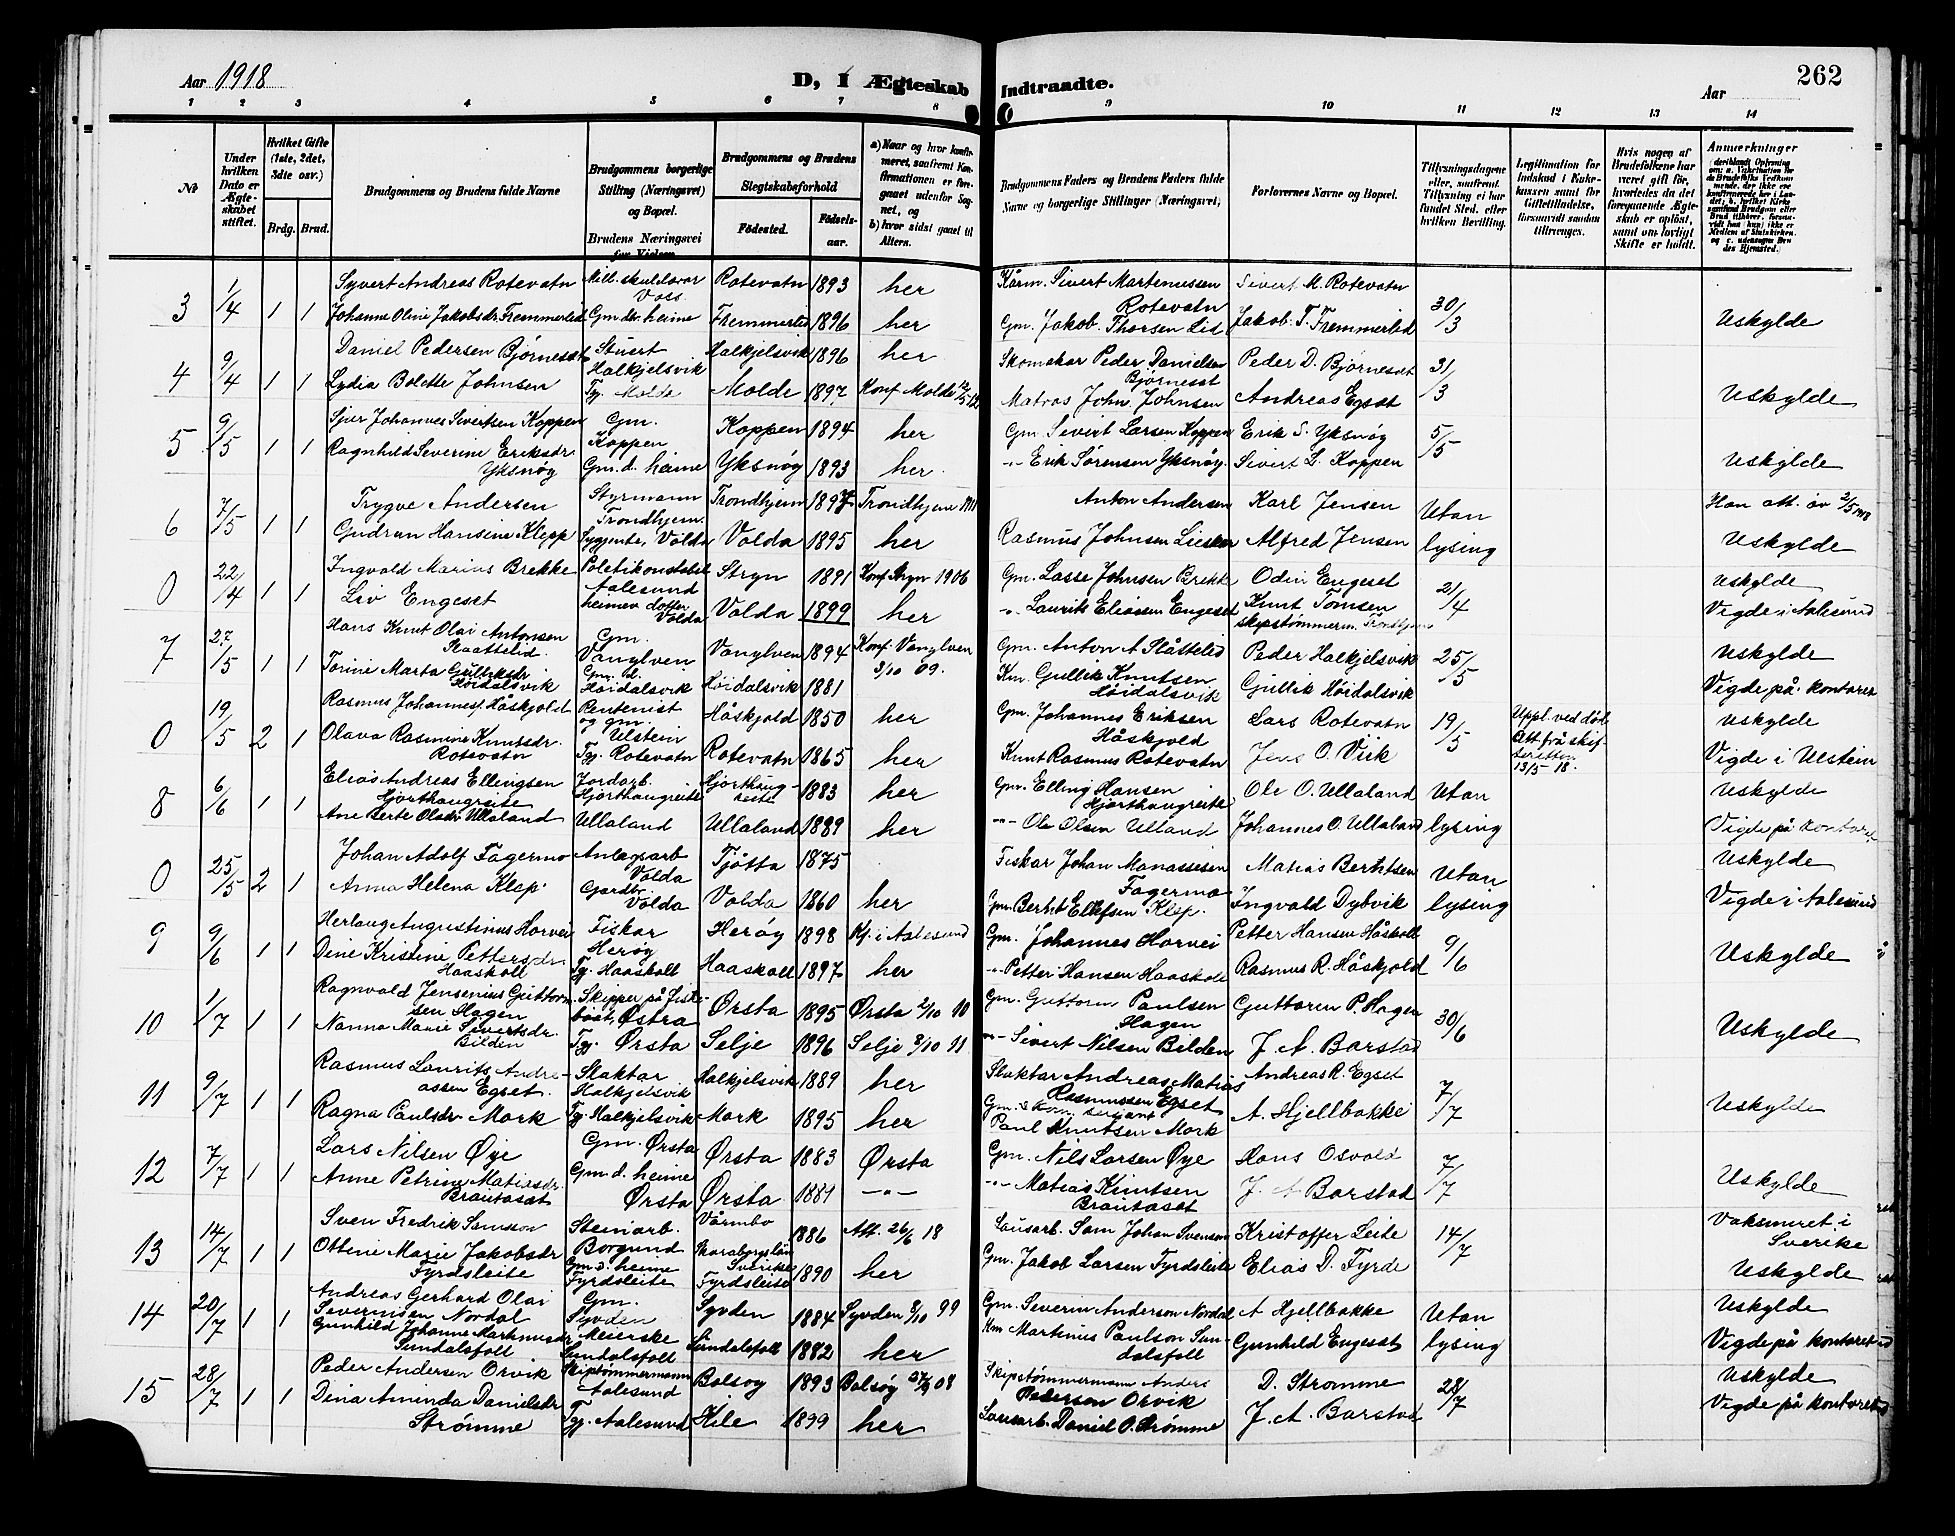 Aar 1918
D, I Ægteskab Indtraadte.
Aar 262
1 2 3 4 5 6 7 8 9 10 11 12 13 14
No
Under hvilken Dato er Ægteskabet stiftet.
Hvilket Gifte (1ste, 2det, 3die osv.)
Brdg. Brud.
Brudgommens og Brudens fulde Navne
Brudgommens borgerlige Stilling (Næringsvei) og Bopæl.
Brudens Næringsvei før Vielsen
Brudgommens og Brudens
Slegtskabsforhold
Fødested. Fødselsaar.
a) Naar og hvor konfirmeret, saafremt Konfirmationen er foregaaet udenfor Sognet, og
b) hvor sidst gaaet til Alters.
Brudgommens Faders og Brudens Faders fulde Navne og borgerlige Stillinger (Næringsvei)
Forlovernes Navne og Bopæl.
Tillysningsdagene eller, saafremt Tillysning ei har fundet Sted, efter hvilken Bevilling.
Legitimation for Indskud i Enkekassen samt for Giftetilladelse, forsaavidt saadan tiltrænges.
Hvis nogen af Brudefolkene har været gift før, hvorledes da det foregaaende Ægteskab er opløst, samt om lovligt Skifte er holdt.
Anmerkninger
3 1/4 1 1 Syvert Andreas Rotevatn Mil. skuldsvor Voss Rotevatn 1893 her Kårm. Sivert Martenussen Rotevatn Sivert M. Rotevatn 30/3
Johanne Oline Jakobsdr Fremmerlid Gm dr. heime Fremmerlid 1896 her Gm. Jakob Thorsen Lid Jakob T. Fremmerlid Uskylde
4 9/4 1 1 Daniel Pedersen Bjørneset Stuert Halkjelsvik Halkjelsvik 1896 her Skomakar Peder Danielsen Bjørneset Peder D. Bjørneset 31/3
Lydia Bolette Johnsen Tj. Molde Molde 1897 Konf. Molde 12/5 12 Matros John Johnsen Andreas Egset Uskylde
5 9/5 1 1 Sjur Johannes Sivertsen Koppen Gm. Koppen Koppen 1894 her Gm Sivert Larsen Koppen Erik S. Yksnøy 5/5
Ragnhild Severine Eriksdr Yksnøy Gm. d. heime Yksnøy 1893 her Erik Sørensen Yksnøy Sivert L. Koppen Uskylde
6 7/5 1 1 Trygve Andersen Styrmann Trondhjem. Trondhjem 1897 Trondhjem 1911 Anton Andersen Karl Jensen Utan Han att. av 2/5 1918
Gudrun Hansine Klepp Sygjente, Volda Volda 1895 her Rasmus Johnsen Alfred Jensen lysing Uskylde
0 22/4 1 1 Ingvald Marius Brekke Politikonstabel Aalesund Stryn 1891 Konf. Stryn 1906 Gm. Lasse Johnsen Brekk Odin Engeset 21/4 Uskylde
Liv Engeset heimev. dotter Volda Volda 1899 her Laurits Eliassen Engeset Knut Tomsen skipstømmerm. Trondhjem Vigde i Aalesund
7 27/5 1 1 Hans Knut Olai Antonsen Slaattelid. Gm. Vanylven Vanylven 1894 Konf. Vanylven 3/10 09. Gm. Anton A Slåttelid Peder Halkjelsvik 25/5 Uskylde
Torine Marta Gulliksdr Høidalsvik Gm. d. Høidalsvik Høidalsvik 1881 Km. Gullik Knutsen Høidalsvik Gullik Høidalsvik Vigde på kontoret
0 19/5 2 1 Rasmus Johannes Håskjold Rentenist og gm. Ulstein Håskjold 1850 her Gm. Johannes Eriksen Håskjold Lars Rotevatn 19/5 Uppl. ved død Att frå skifteretten 13/5 18. Uskylde
Olava Rasmine Knutsdr. Rotevatn Tj. Rotevatn Rotevatn 1865 her Knut Rasmus Rotevatn Jens O. Vik Vigde i Ulstein
8 6/6 1 1 Elias Andreas Ellingsen Hjorthaugreite Jordarb. Hjorthaugreite Hjorthaugreite 1883 her Gm. Elling Hansen Hjorthaugreite Ole O. Ullaland Utan Uskylde
Ane Berte Oladr Ullaland Ullaland Ullaland 1889 her Ole Olsen Ulland Johannes O. Ullaland lysing Vigde på kontoret
0 25/5 2 1 Johan Adolf Fagermo Anlegsarb Volda Tjøtta 1875 Fiskar Johan Manassesen Fagermo Matias Berntsen Utan Uskylde
Anna Helena Klep Gardbr. Volda Volda 1860 her Gm. Bernt Ellefsen Klep. Ingvald Dybvik lysing Vigde i Aalesund
9 9/6 1 1 Herlaug Augustinus Horvei Fiskar Herøy Herøy 1898 Kf. i Aalesund Gm. Johannes Horvei Petter Hansen Håskoll 9/6
Dine Kristine Pettersdr Haaskoll Tj. Haaskoll Haaskoll 1897 her Petter Hansen Haaskoll Rasmus R. Håskjold Uskylde
10 1/7 1 1 Ragnvald Jensenius Guttormsen Hagen Skipper på fiskebåt, Østra Ørsta 1895 Ørsta 2/10 10 Gm. Guttorm Paulsen Hagen Guttorm P. Hagen 30/6
Nanna Marie Sivertsdr. Bilden Tj. Ørsta Selje 1896 Selje 8/10 11 Sivert Nilsen Bilden J. A. Barstad Uskylde
11 9/7 1 1 Rasmus Laurits Andreassen Egset. Slaktar Halkjelsvik Halkjelsvik 1889 her Slaktar Andreas Matias Rasmussen Egset Andreas R. Egset 7/7
Ragna Paulsdr Mork Tj. Halkjelsvik Mork 1895 her Gm. & Korn. serjant Paul Knutsen Mork A. Hjellbakke Uskylde
12 7/7 1 1 Lars Nilsen Øye Gm. Ørsta Ørsta 1883 Ørsta Gm. Nils Larsen Øye Hans Osvold 7/7
Anne Petrine Matiasdr. Brautaset Gm d. heime Ørsta Ørsta 1881 -"- Matias Knutsen Brautaset J. A Barstad Uskylde
13 14/7 1 1 Sven Fredrik Samsson Steinarb. Borgund Vårmbo Skaraborgslän Sverike 1886 Att. 26/6 18 Lausarb. Sam Johan Svenson Kristoffer Leite 14/7 Vaksineret i Sverike
Ottine Marie Jakobsdr Fyrdsleite Gm d. heime Fyrdsleite Fyrdsleite 1890 her Gm. Jakob Larsen Fyrdsleite Elias D. Fyrde Uskylde
14 20/7 1 1 Andreas Gerhard Olai Severinsen Nordal Gm. Syvden Syvden 1884 Syvden 8/10 99 Gm. Severin Anderson Nordal A Hjellbakke Utan Uskylde
Gunhild Johanne Martinusdr Sundalsfoll Meierske Sundalsfoll Sundalsfoll 1882 her Km Martinus Paulson Sundalsfoll Gunhild Engeset lysing Vigde på kontoret
15 28/7 1 1 Peder Andersen Orvik Skipstømmermann Aalesund Bolsøy 1893 Bolsøy 27/9 08 Skipstømmermann Anders Pedersen Orvik D. Strømme 28/7 Uskylde
Dina Amanda Danielsdr Strømme Tj. Aalesund Kile 1899 her Lausarb. Daniel O. Strømme J. A. Barstad Vigde på kontoret